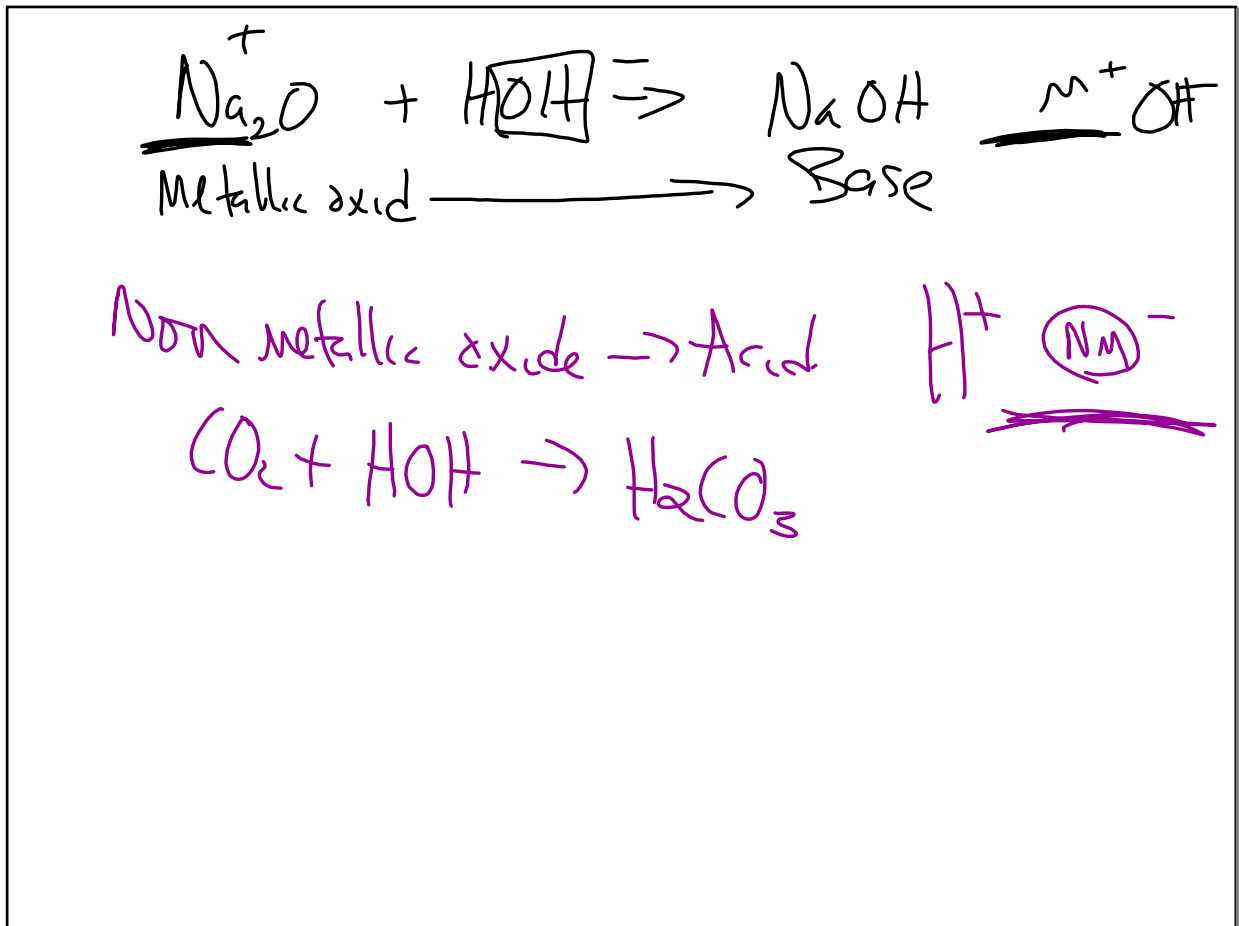 Na₂⁺O + HOH ⇒ NaOH M⁺OH⁻
Metallic oxid → Base
Non metallic oxide → Acid H⁺ NM⁻
CO₂ + HOH → H₂CO₃